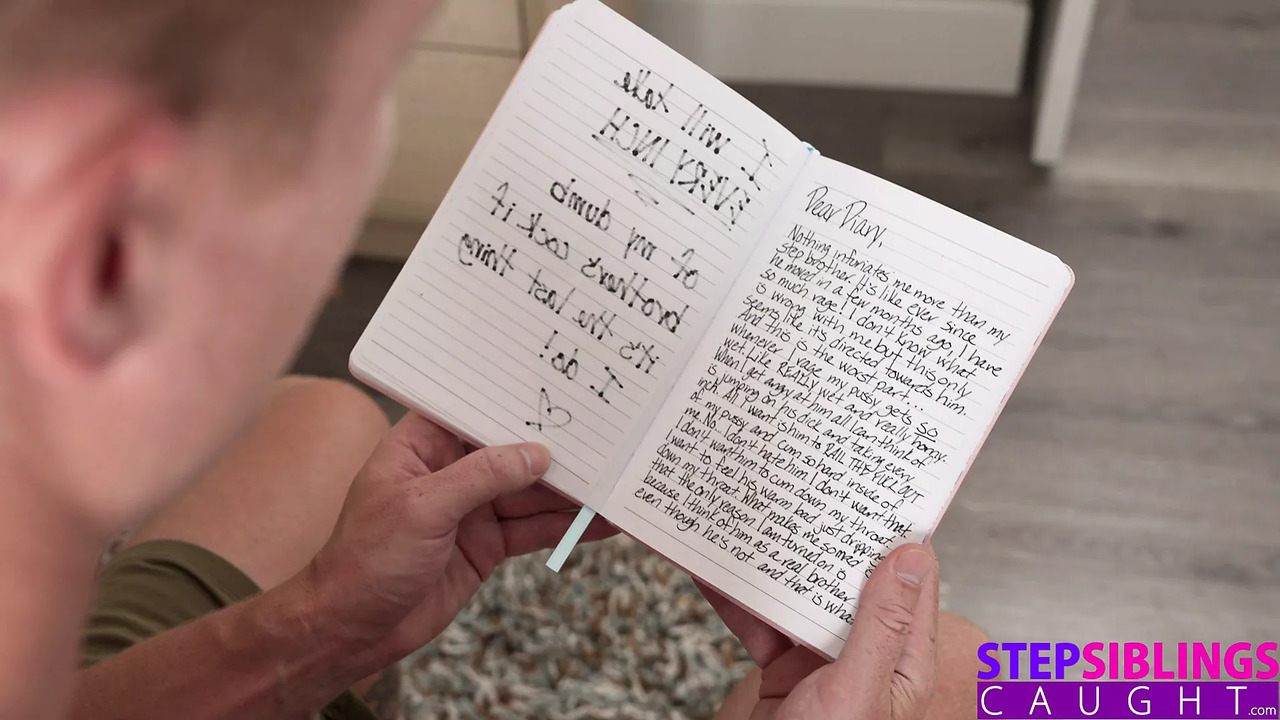 I will take
EVERY INCH
of my dumb
brother's cock if
it's the last thing
I do!
Dear Diary,
Nothing infuriates me more than my
step brother. It's like ever since
he moved in a few months ago, I have
so much rage. I don't know what
is wrong with me but this only
seems like it's directed towards him.
And this is the worst part...
whenever I rage my pussy gets so
wet. Like REALLY wet and really horny.
When I get angry at him all I can think of
is jumping on his dick and taking every
inch. All I want is him to RAIL THE FUCK OUT
of my pussy and cum so hard inside of
me. No.. I don't hate him I don't want that.
I don't want him to cum down my throat.
I want to feel his warm load just dripping
down my throat. What makes me so mad is
that the only reason I am turned on is
because I think of him as a real brother
even though he's not and that is
STEPSIBLINGS
CAUGHT.com